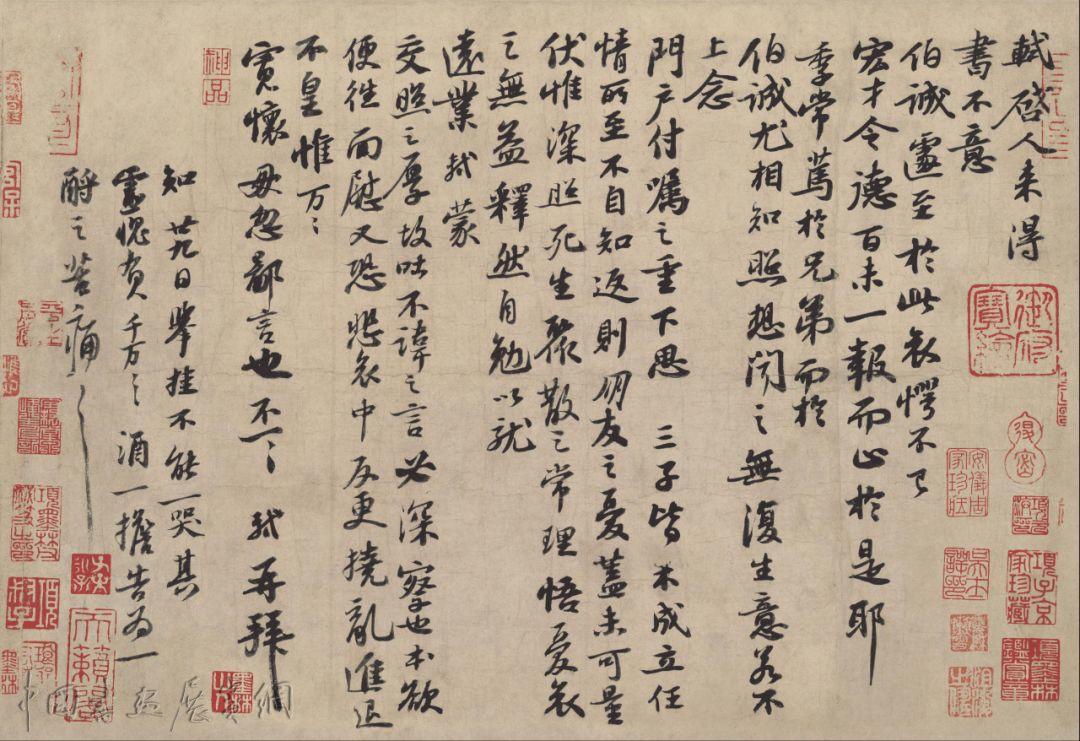 軾啓人來得
書不意
伯誠遽至於此哀愕不已
宏才令德百未一報而止於是耶
季常篤於兄弟而於
伯誠尤相知照想聞之無復生意若不
上念
門户付囑之重下思 三子皆未成立任
情所至不自知返則朋友之憂蓋未可量
伏惟深照死生聚散之常理悟憂哀
之無益釋然自勉以就
遠業軾蒙
交照之厚故吐不諱之言必深察也本欲
便往面慰又恐悲哀中反更撓亂進退
不皇惟万〻
寬懷毋忽鄙言也不一〻軾再拜
知廿九日舉挂不能一哭其
靈愧負千万〻酒一擔告為一
酹之苦痛〻
御府寶繪
安儀周家珍藏
項子京家珍藏
神品